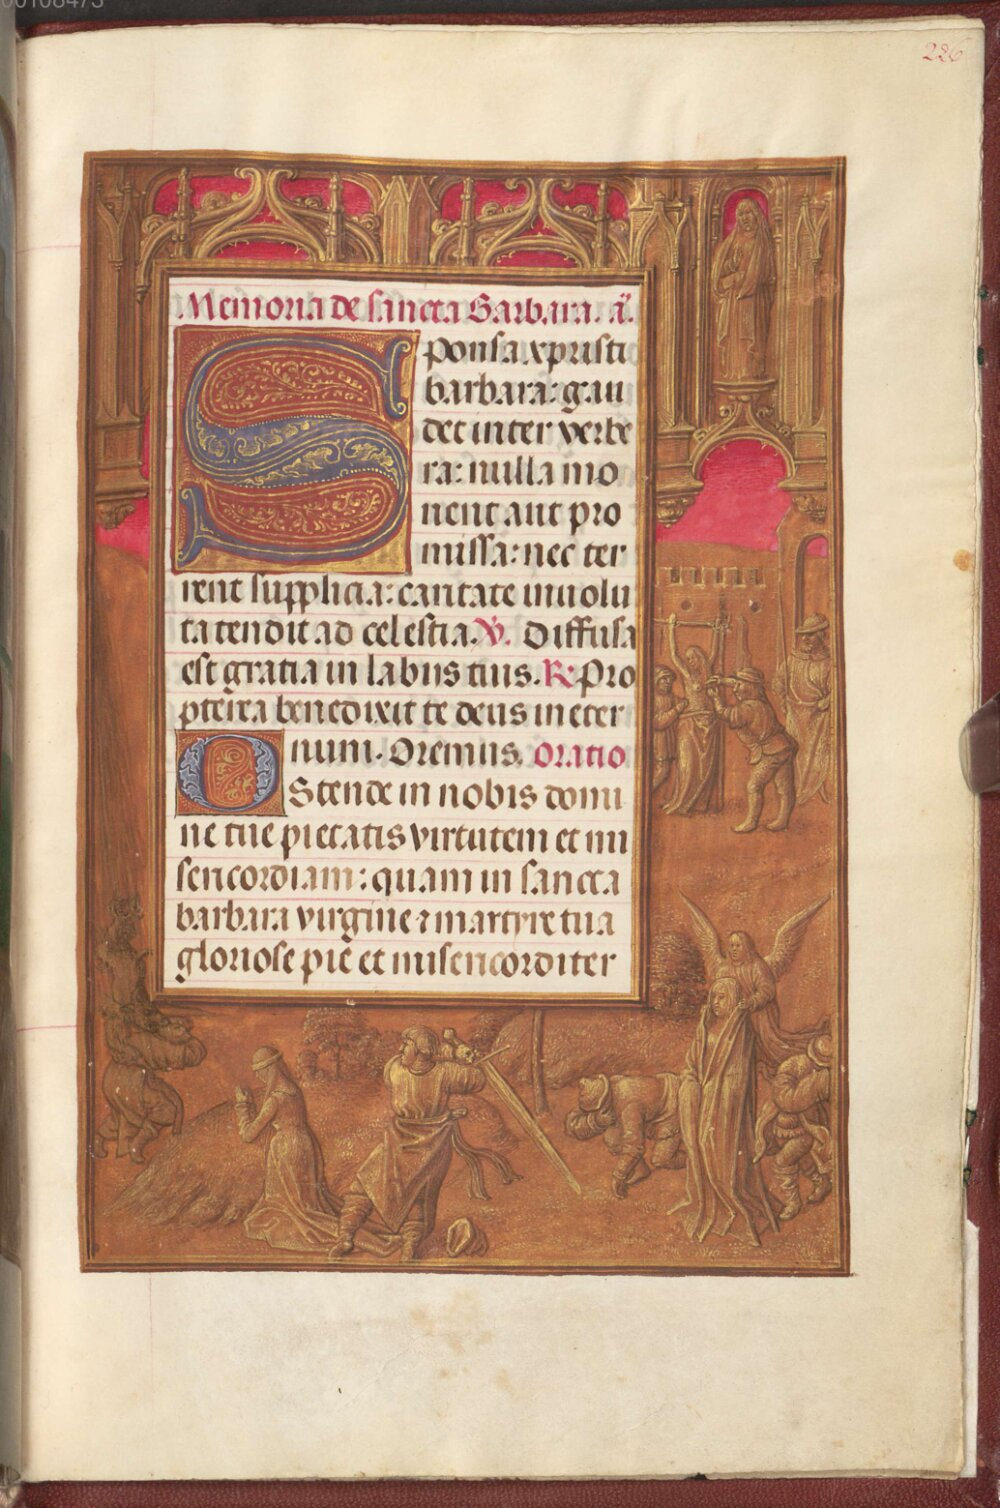 00108473
226
Memoria de sancta Barbara. añ.
Sponsa xpristi
barbara: gau
det inter verbe
ra: nulla mo
nent aut pro
missa: nec ter
rent supplicia: caritate inuolu
ta tendit ad celestia. V. Diffusa
est gratia in labiis tuis. R: Pro
pterea benedixit te deus in eter
num. Oremus. Oratio
OStende in nobis domi
ne tue pietatis virtutem et mi
sericordiam: quam in sancta
barbara virgine ⁊ martyre tua
gloriose pie et misericorditer